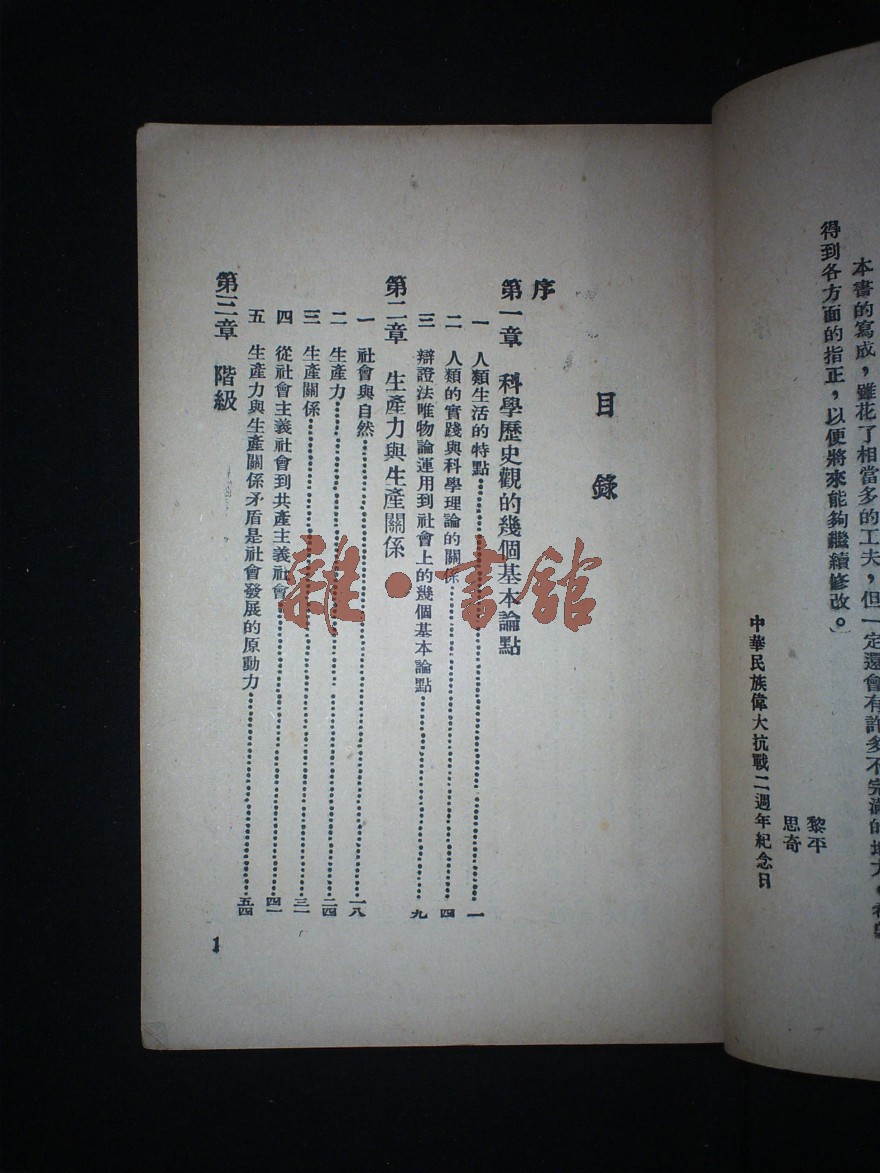 本書的寫成，雖花了相當多的工夫，但一定還會有許多不完滿的地方。希望
得到各方面的指正，以便將來能夠繼續修改。
黎平
思奇
中華民族偉大抗戰二週年紀念日
目錄
序
第一章 科學歷史觀的幾個基本論點
一 人類生活的特點 一
二 人類的實踐與科學理論的關係 四
三 辯證法唯物論運用到社會上的幾個基本論點 九
第二章 生產力與生產關係
一 社會與自然 一八
二 生產力 二四
三 生產關係 三一
四 從社會主義社會到共產主義社會 四一
五 生產力與生產關係矛盾是社會發展的原動力 五四
第三章 階級
1
雜·書館